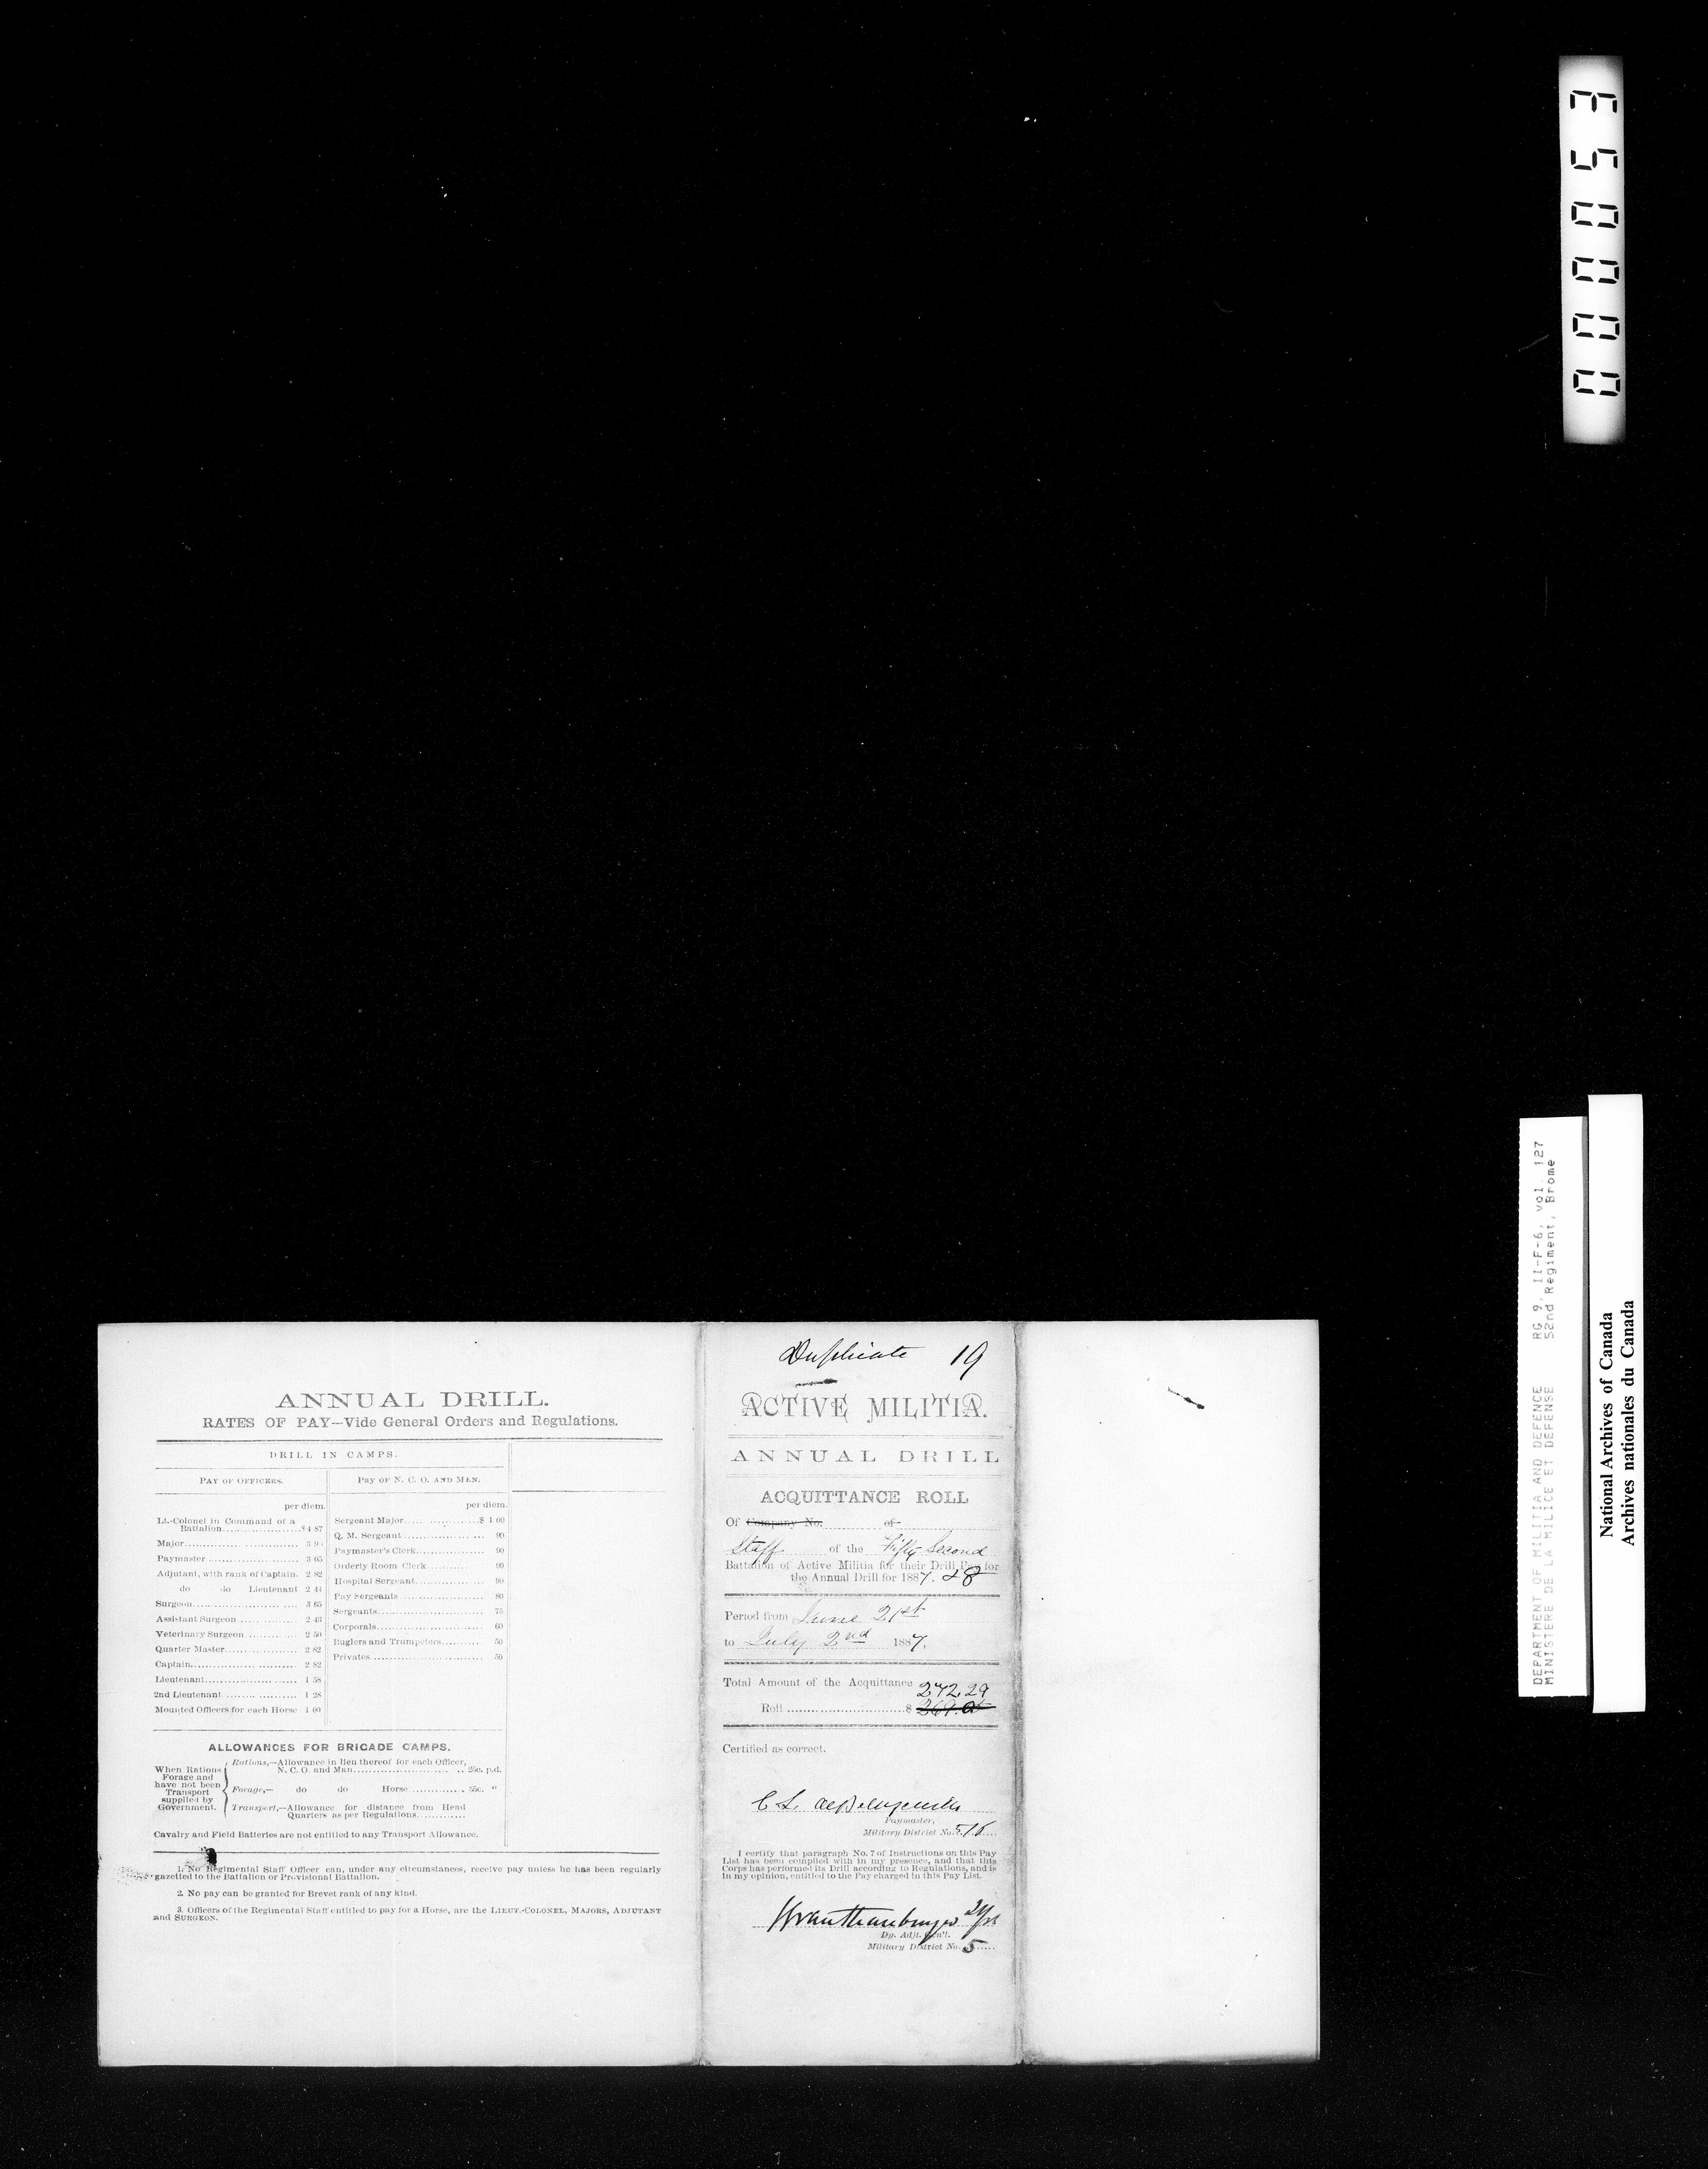 000053
DEPARTMENT OF MILITIA AND DEFENCE RG 9, II-F-6, vol. 127
MINISTERE DE LA MILICE ET DEFENSE 52nd Regiment, Brome
National Archives of Canada
Archives nationales du Canada
ANNUAL DRILL.
RATES OF PAY—Vide General Orders and Regulations.
DRILL IN CAMPS.
PAY OF OFFICERS.
per diem.
Lt.-Colonel in Command of a
Battalion.....................$4 87
Major............................ 3 9
Paymaster ...................... 3 05
Adjutant, with rank of Captain. 2 82
do do Lieutenant 2 44
Surgeon......................... 3 65
Assistant Surgeon ............... 2 43
Veterinary Surgeon .............. 2 50
Quarter Master................... 2 82
Captain.......................... 2 82
Lieutenant....................... 1 58
2nd Lieutenant .................. 1 28
Mounted Officers for each Horse 1 00
Pay of N. C. O. AND MEN.
per diem.
Sergeant Major...................$ 1 00
Q. M. Sergeant .................. 90
Paymaster's Clerk................ 90
Orderly Room Clerk............... 90
Hospital Sergeant................ 90
Pay Sergeants ................... 80
Sergeants........................ 75
Corporals........................ 60
Buglers and Trumpeters........... 50
Privates......................... 50
ALLOWANCES FOR BRIGADE CAMPS.
When Rations
Forage and
have not been
Transport
supplied by
Government.
Rations,—Allowance in lieu thereof for each Officer,
N. C. O. and Man........................... 25c. p.d.
Forage,— do do Horse............. 35c. "
Transport,—Allowance for distance from Head
Quarters as per Regulations............
Cavalry and Field Batteries are not entitled to any Transport Allowance.
1. No Regimental Staff Officer can, under any circumstances, receive pay unless he has been regularly
gazetted to the Battalion or Provisional Battalion.
2. No pay can be granted for Brevet rank of any kind.
3. Officers of the Regimental Staff entitled to pay for a Horse, are the LIEUT.-COLONEL, MAJORS, ADJUTANT
and SURGEON.
Duplicate 19
ACTIVE MILITIA.
ANNUAL DRILL
ACQUITTANCE ROLL
Of Company No. of
Staff of the Fifty Second
Battalion of Active Militia for their Drill Pay for
the Annual Drill for 1887.
Period from June 21st
to July 2nd 1887.
Total Amount of the Acquittance 272.29
Roll ..............................$
Certified as correct.
C L.
Paymaster,
Military District No. 5/6
I certify that paragraph No. 7 of Instructions on this Pay
List has been complied with in my presence, and that this
Corps has performed its Drill according to Regulations, and is
in my opinion, entitled to the Pay charged in this Pay List.
Dy. Adjt. Gen'l.
Military District No. 5